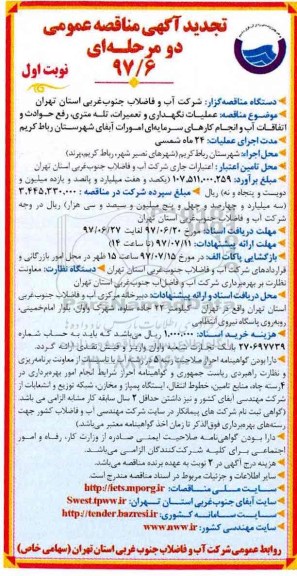 تجدید آگهی مناقصه عمومی
دو مرحله‌ای
۹۷/۶
نوبت اول
دستگاه مناقصه‌گزار: شرکت آب و فاضلاب جنوب‌غربی استان تهران
موضوع مناقصه: عملیات نگهداری و تعمیرات، تله متری، رفع حوادث و
اتفاقات آب و انجام کارهای سرمایه‌ای امورات آبفای شهرستان رباط کریم
مدت اجرای عملیات: ۲۴ ماه شمسی
محل اجراء: شهرستان رباط کریم (شهرهای نصیر شهر، رباط کریم، پرند)
محل تامین اعتبار: اعتبارات جاری شرکت آب و فاضلاب جنوب‌غربی استان تهران
مبلغ برآورد: ۱۰۷,۵۱۱,۰۰۰,۲۵۹ (یکصد و هفت میلیارد و پانصد و یازده میلیون و
دویست و پنجاه و نه) ریال مبلغ سپرده شرکت در مناقصه: ۳,۴۴۵,۳۳۰,۰۰۰
(سه میلیارد و چهارصد و چهل و پنج میلیون و سیصد و سی هزار) ریال در وجه
شرکت آب و فاضلاب جنوب غربی استان تهران
مهلت دریافت اسناد: مورخ ۹۷/۰۶/۲۰ لغایت ۹۷/۰۶/۲۷
مهلت ارائه پیشنهادات: ۹۷/۰۷/۱۱ (تا ساعت ۱۴)
بازگشایی پاکات الف: در مورخ ۹۷/۰۷/۱۵ ساعت ۱۵ ظهر در محل امور بازرگانی و
قراردادهای شرکت آب و فاضلاب جنوب‌غربی استان تهران دستگاه نظارت: معاونت
نظارت بر بهره‌برداری شرکت آب و فاضلاب جنوب غربی استان تهران
محل دریافت اسناد و ارائه پیشنهادات: دبیرخانه مرکزی آب و فاضلاب جنوب‌غربی
استان تهران واقع در تهران کیلومتر ۲۲ جاده ساوه، شهرک واوان، بلوار امام‌خمینی،
روبه‌روی پاسگاه نیروی انتظامی
هزینه خرید اسناد: ۱,۰۰۰,۰۰۰ ریال می‌باشد که باید به حساب شماره
۲۷۰۶۹۷۷۳۹ بانک تجارت شعبه واوان واریز و فیش نقدی ارائه گردد.
دارا بودن گواهینامه احراز صلاحیت رتبه ۵ در رشته آب یا تاسیسات از معاونت برنامه‌ریزی
و نظارت راهبردی ریاست جمهوری و گواهینامه احراز شرایط انجام امور بهره‌برداری در
۴ رسته چاه، منابع تامین، خطوط انتقال، ایستگاه پمپاژ و مخازن، شبکه توزیع و انشعابات از
شرکت مهندسی آبفای کشور و نیز داشتن حداقل ۲ سال سابقه کار مشابه الزامی می باشد.
(گواهی ثبت نام شرکت های پیمانکار در سایت شرکت مهندسی آب و فاضلاب کشور جهت
رسته‌های بهره‌برداری فوق‌الذکر تا زمان اخذ گواهینامه معتبر می‌باشد.)
دارا بودن گواهی‌نامه صلاحیت ایمنی صادره از وزارت کار، رفاه و امور
اجتماعی برای کلیه شرکت‌کنندگان الزامی می‌باشد.
هزینه درج آگهی در ۲ نوبت به عهده برنده مناقصه می‌باشد.
سایر اطلاعات و جزئیات مربوط در اسناد مناقصه مندرج است
سایت ملی مناقصات: http://iets.mporg.ir
سایت آبفای جنوب‌غربی استان تهران: Swest.tpww.ir
سایت سامانه کشوری: http://tender.bazresi.ir
سایت مهندسی کشور: www.nww.ir
روابط عمومی شرکت آب و فاضلاب جنوب غربی استان تهران (سهامی خاص)